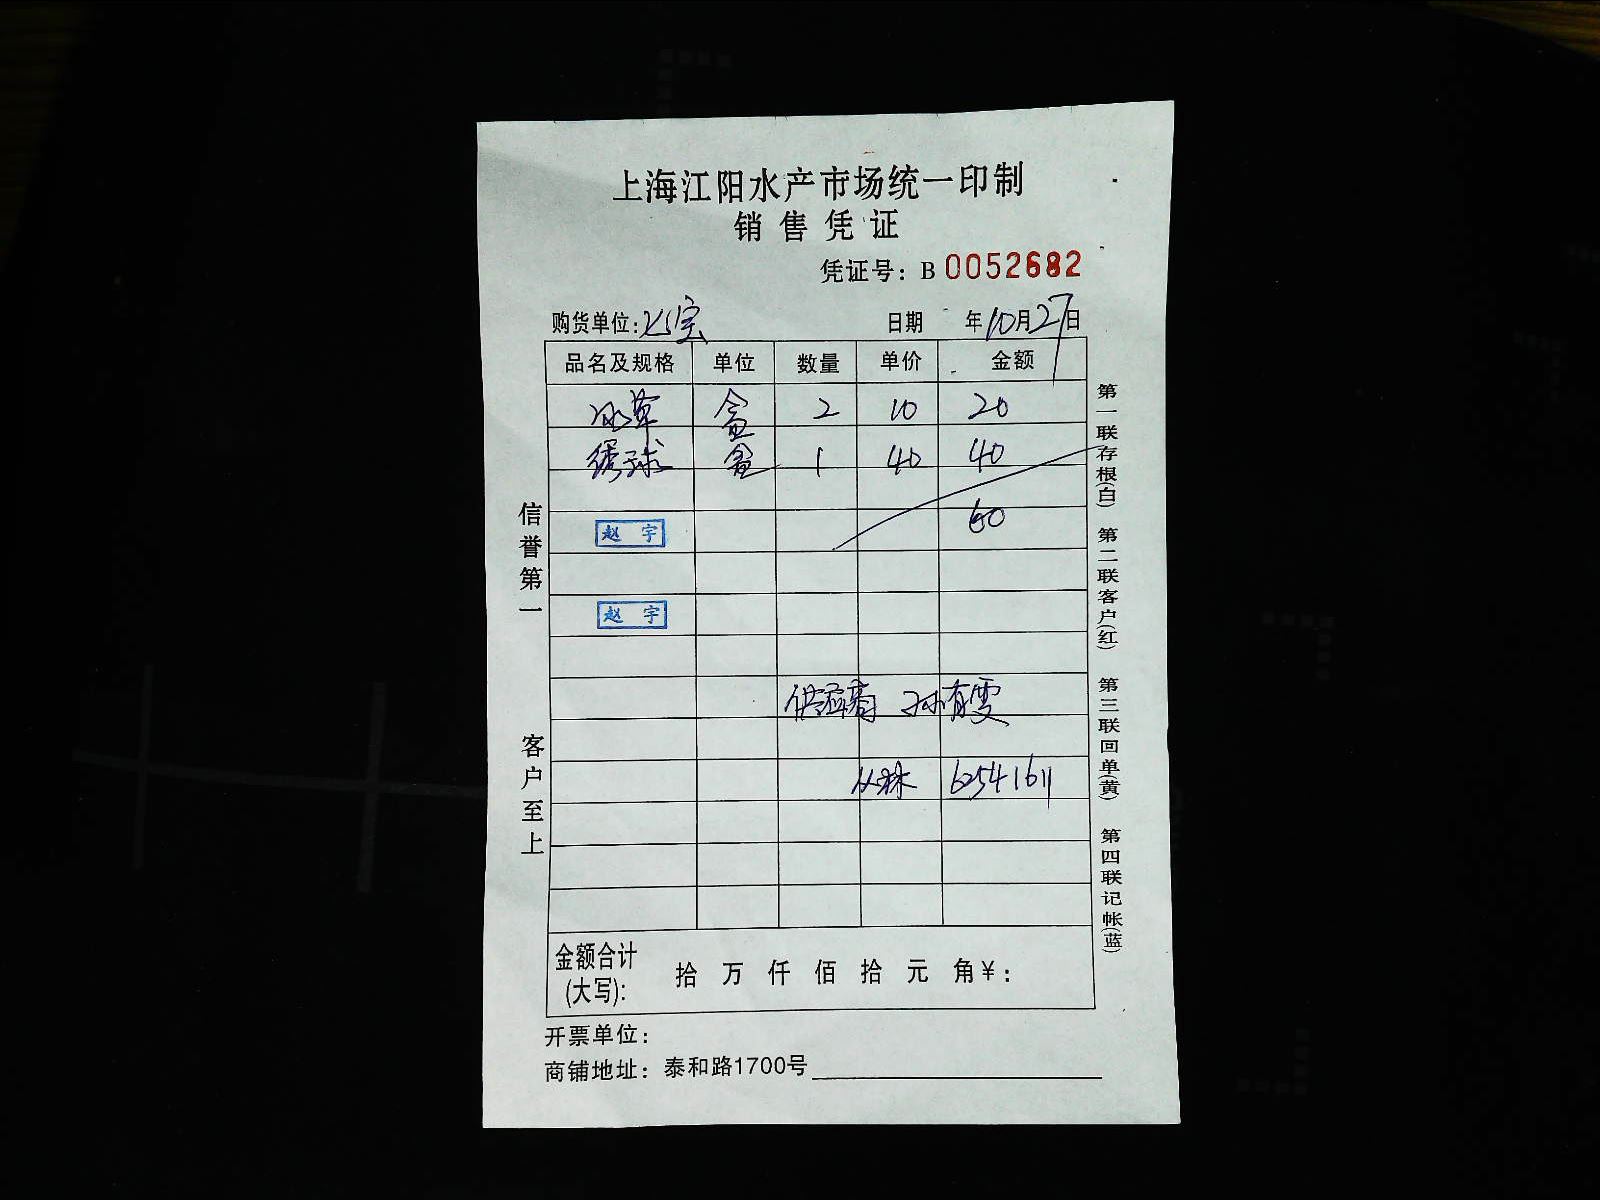 上海江阳水产市场统一印制
销售凭证
凭证号：B 0052682
购货单位：
日期 年10月27日
品名及规格 单位 数量 单价 金额
冰草 盒 2 10 20
绣球 盒 1 40 40
60
赵宇
赵宇
供应商 孙有雯
丛林 62541611
金额合计(大写)： 拾 万 仟 佰 拾 元 角￥：
开票单位：
商铺地址：泰和路1700号
信誉第一 客户至上
第一联存根(白) 第二联客户(红) 第三联回单(黄) 第四联记帐(蓝)